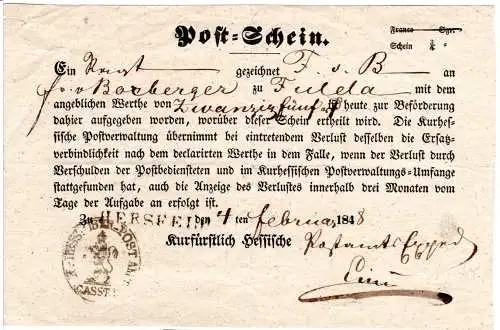 Post-Schein.
Franco Sgr.
Schein ¼ "
Ein gezeichnet F. v B an
Boxberger zu Fulda mit dem
angeblichen Werthe von Zwanzigfünf heute zur Beförderung
dahier aufgegeben worden, worüber dieser Schein ertheilt wird. Die Kurhes-
sische Postverwaltung übernimmt bei eintretendem Verlust desselben die Ersatz-
verbindlichkeit nach dem declarirten Werthe in dem Falle, wenn der Verlust durch
Verschulden der Postbediensteten und im Kurhessischen Postverwaltungs-Umfange
stattgefunden hat, auch die Anzeige des Verlustes innerhalb drei Monaten vom
Tage der Aufgabe an erfolgt ist.
Zu HERSFELD den 4 ten februar 1848
Kurfürstlich Hessische Postamts Exped
CASSEL